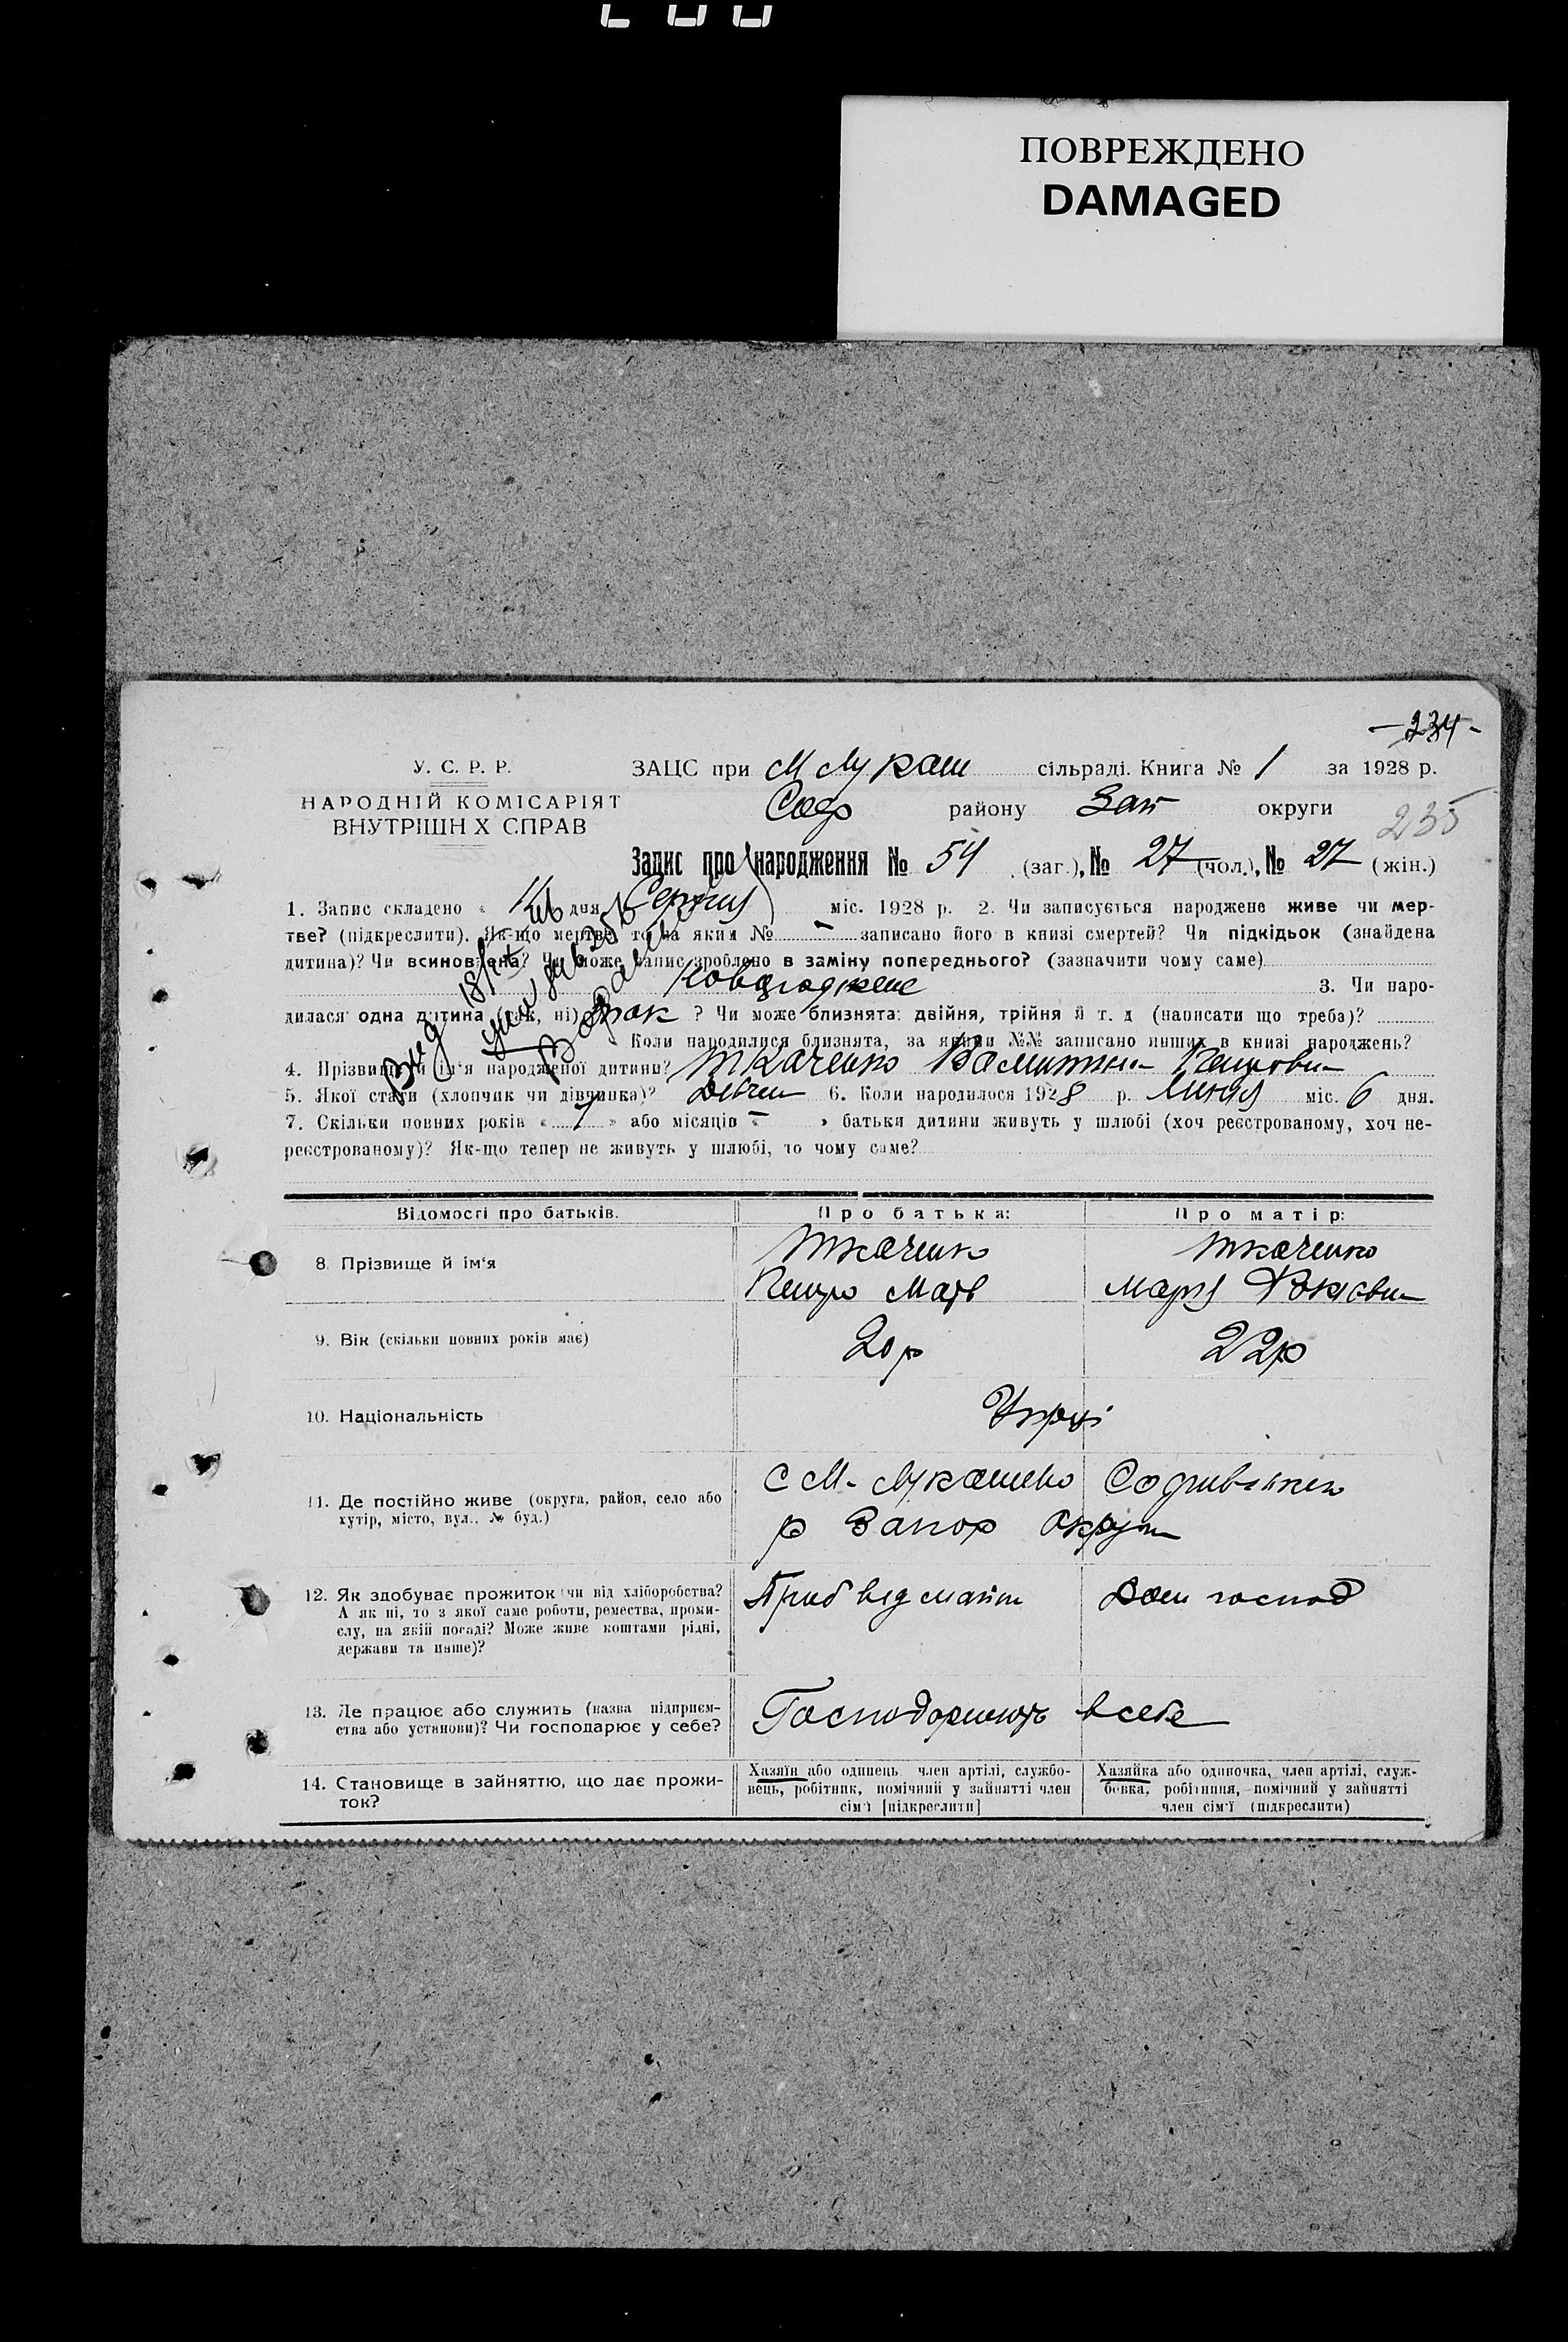 ПОВРЕЖДЕНО
DAMAGED
-234-
У. С. Р. Р.
НАРОДНІЙ КОМІСАРІЯТ
ВНУТРІШН Х СПРАВ
ЗАЦС при М Лукаш сільраді. Книга № 1 за 1928 р.
Соф району Зап округи
235
Запис про народження № 54 (заг.), № 27 (чол.), № 27 (жін.)
1. Запис складено « дня Серпня міс. 1928 р. 2. Чи записується народжене живе чи мер-
тве? (підкреслити). Як-що мертве, то за яким № - записано його в книзі смертей? Чи підкідьок (знайдена
дитина)? Чи всиновлена? Чи може запис зроблено в заміну попереднього? (зазначити чому саме)
3. Чи наро-
дилася одна дитина (так, ні) так ? Чи може близнята: двійня, трійня й т. д (написати що треба)?
Коли народилися близнята, за якими №№ записано инших в книзі народжень?
4. Прізвище й ім'я народженої дитини? Ткаченко Валентина Петровн
5. Якої стати (хлопчик чи дівчинка)? Девчен 6. Коли народилося 1928 р. Липня міс. 6 дня.
7. Скільки повних років « 1 » або місяців « - » батьки дитини живуть у шлюбі (хоч реєстрованому, хоч не-
реєстрованому)? Як-що тепер не живуть у шлюбі, то чому саме?
Відомості про батьків.
Про батька:
Про матір:
8. Прізвище й ім'я
Ткаченко
Петро Матв
Ткаченко
Мария
9. Вік (скільки повних років має)
20 р
22 р
10. Національність
Укрці
11. Де постійно живе (округа, район, село або
хутір, місто, вул., № буд.)
С М- Лукашево Софиевськ
р Запор Округи
12. Як здобуває прожиток (чи від хліборобства?
А як ні, то з якої саме роботи, ремества, проми-
слу, на якій посаді? Може живе коштами рідні,
держави та инше)?
Приб від майн
Дом господ
13. Де працює або служить (назва підприєм-
ства або установи)? Чи господарює у себе?
Господорюють в себе
14. Становище в зайняттю, що дає прожи-
ток?
Хазяїн або одинець, член артілі, службо-
вець, робітник, помічний у зайнятті член
сім'ї [підкреслити]
Хазяйка або одиночка, член артілі, служ-
бовка, робітниця, помічний у зайнятті
член сім'ї (підкреслити)